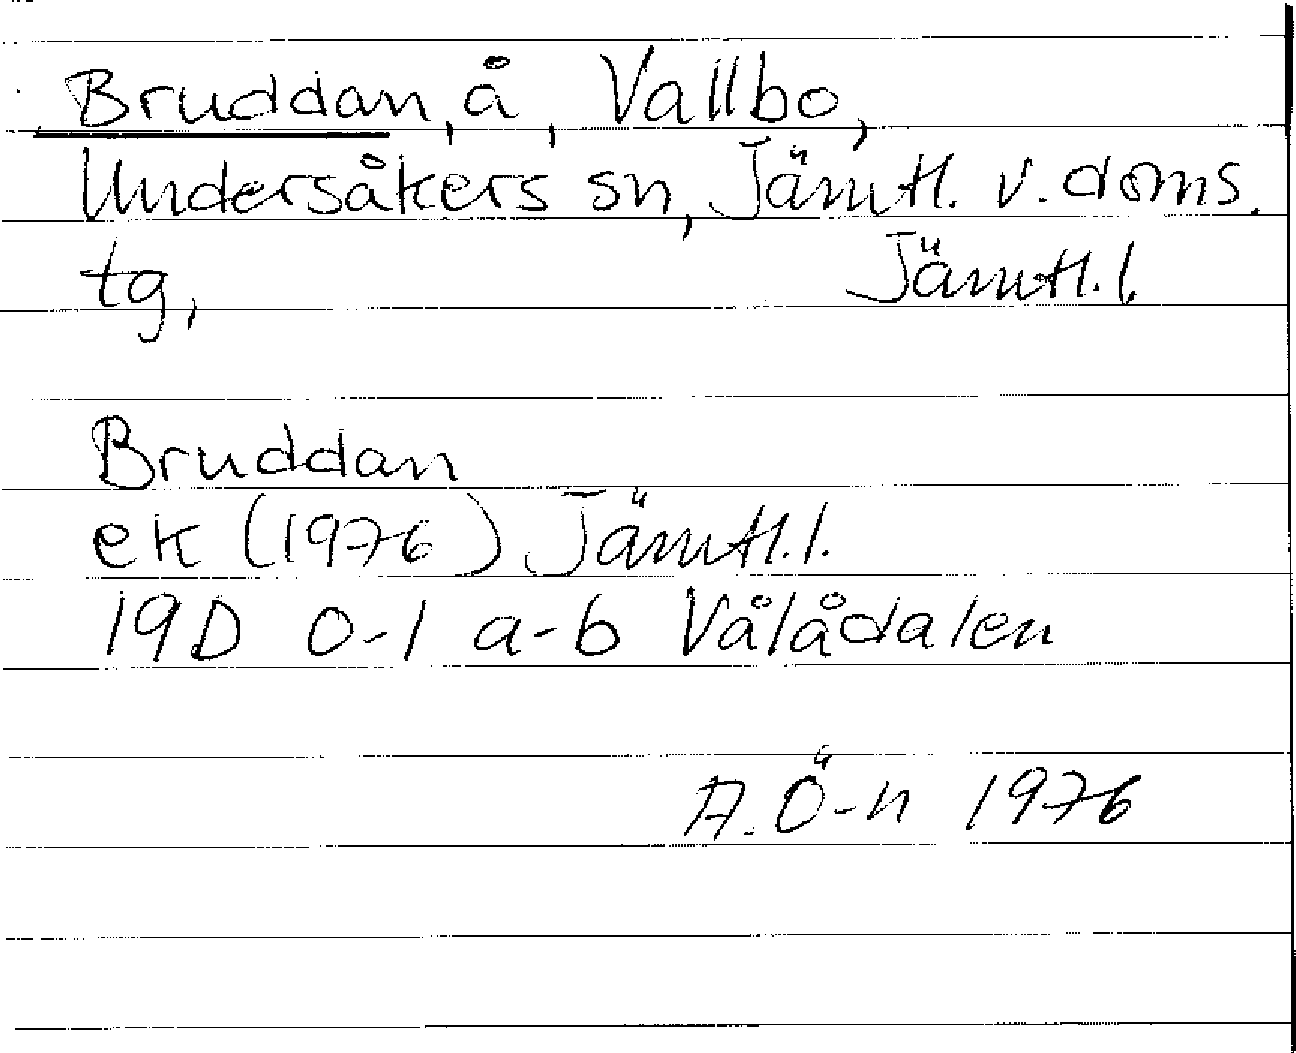 Bruddan, å, Vallbo,
Undersåkers sn, Jämtl. v. doms.
tg, Jämtl. l.
Bruddan
ek (1976) Jämtl. l.
19D 0-1 a-b Vålådalen
A. Ö-n 1976